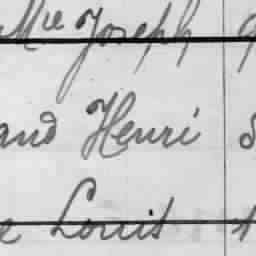 Mie Joseph
and Henri
e Louis